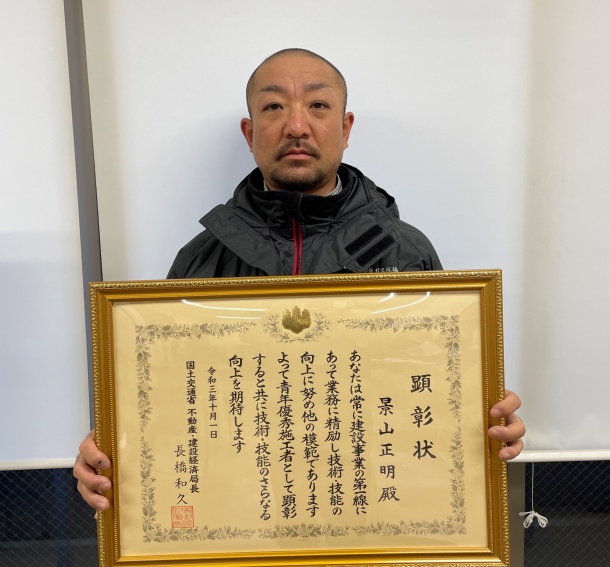 顕彰状
景山正明殿
あなたは常に建設事業の第一線に
あって業務に精励し技術・技能の
向上に努め他の模範であります
よって青年優秀施工者として顕彰
すると共に技術・技能のさらなる
向上を期待します
令和三年十月一日
国土交通省 不動産・建設経済局長
長橋和久